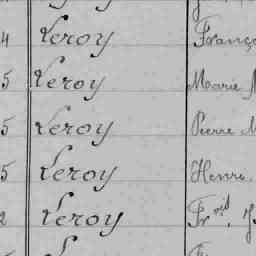 4 Leroy Franço
5 Leroy Marie
5 Leroy Pierre M
5 Leroy Henri
2 Leroy